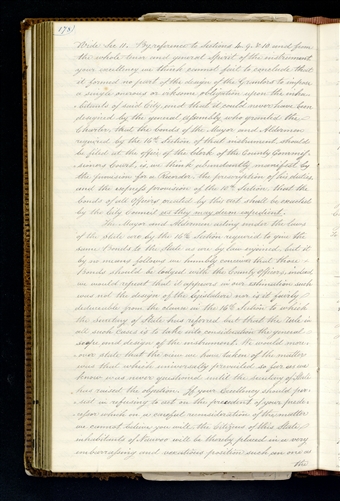 178)
Vide Sec 11. By reference to Sections 4. 9. & 10 and from
the whole tenor and general spirit of the instrument
your excellency we think cannot fail to conclude that
it formed no part of the design of the Grantors to impose
a single onerous or irksome obligation upon the inha-
bitants of said City, and that it could never have been
designed by the general assembly who granted the
Charter that the bonds of the Mayor and Aldermen
required by the 16th Section of that instrument should
be filed at the office of the Clerk of the County Commis-
sioners Court, is, we think, substantially manifest by
the provision for a Recorder the prescription of his duties
and the express provision of the 10th Section that the
bonds of all officers created by this act shall be executed
by the City Council as they may deem expedient.
The Mayor and Aldermen acting under the laws
of the state are by the 16th Section required to give the
same Bonds to the State as are by law enjoined but it
by no means follows we humbly conceive that these
bonds should be lodged with the County officers, indeed
we would repeat that it appears in our estimation such
was not the design of the Legislature nor is it fairly
deducible from the clause in the 16th Section to which
the Secretary of State has referred but that the rule in
all such cases is to take into consideration the general
scope and design of the instrument. We would more-
over state that the view we have taken of the matter
was that which universally prevailed so far as we
know was never questioned until the Secretary of State
thus raised the objection. If your Excellency should per-
sist in refusing to act on the precedent of your prede-
cessor which in a careful consideration of the matter
we cannot believe you will, the Citizens of this State
inhabitants of Nauvoo will be thereby placed in a very
embarrassing and vexatious position such an one as
the